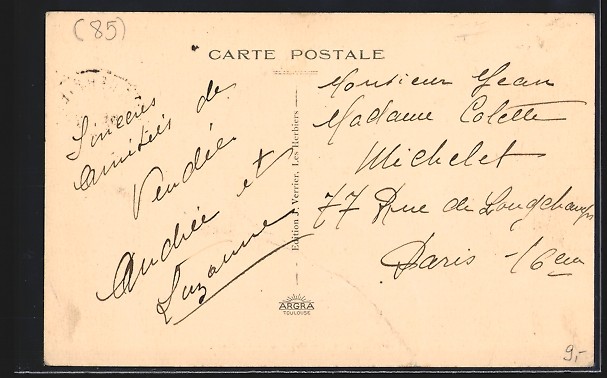 (85)
CARTE POSTALE
Sincères
Amitiés de
Vendée
Andrée et
Suzanne
Edition J. Verrier, Les Herbiers
Monsieur Jean
Madame Colette
Michelet
77 Rue de Longchamps
Paris 16em
ARGRA
TOULOUSE
9,-